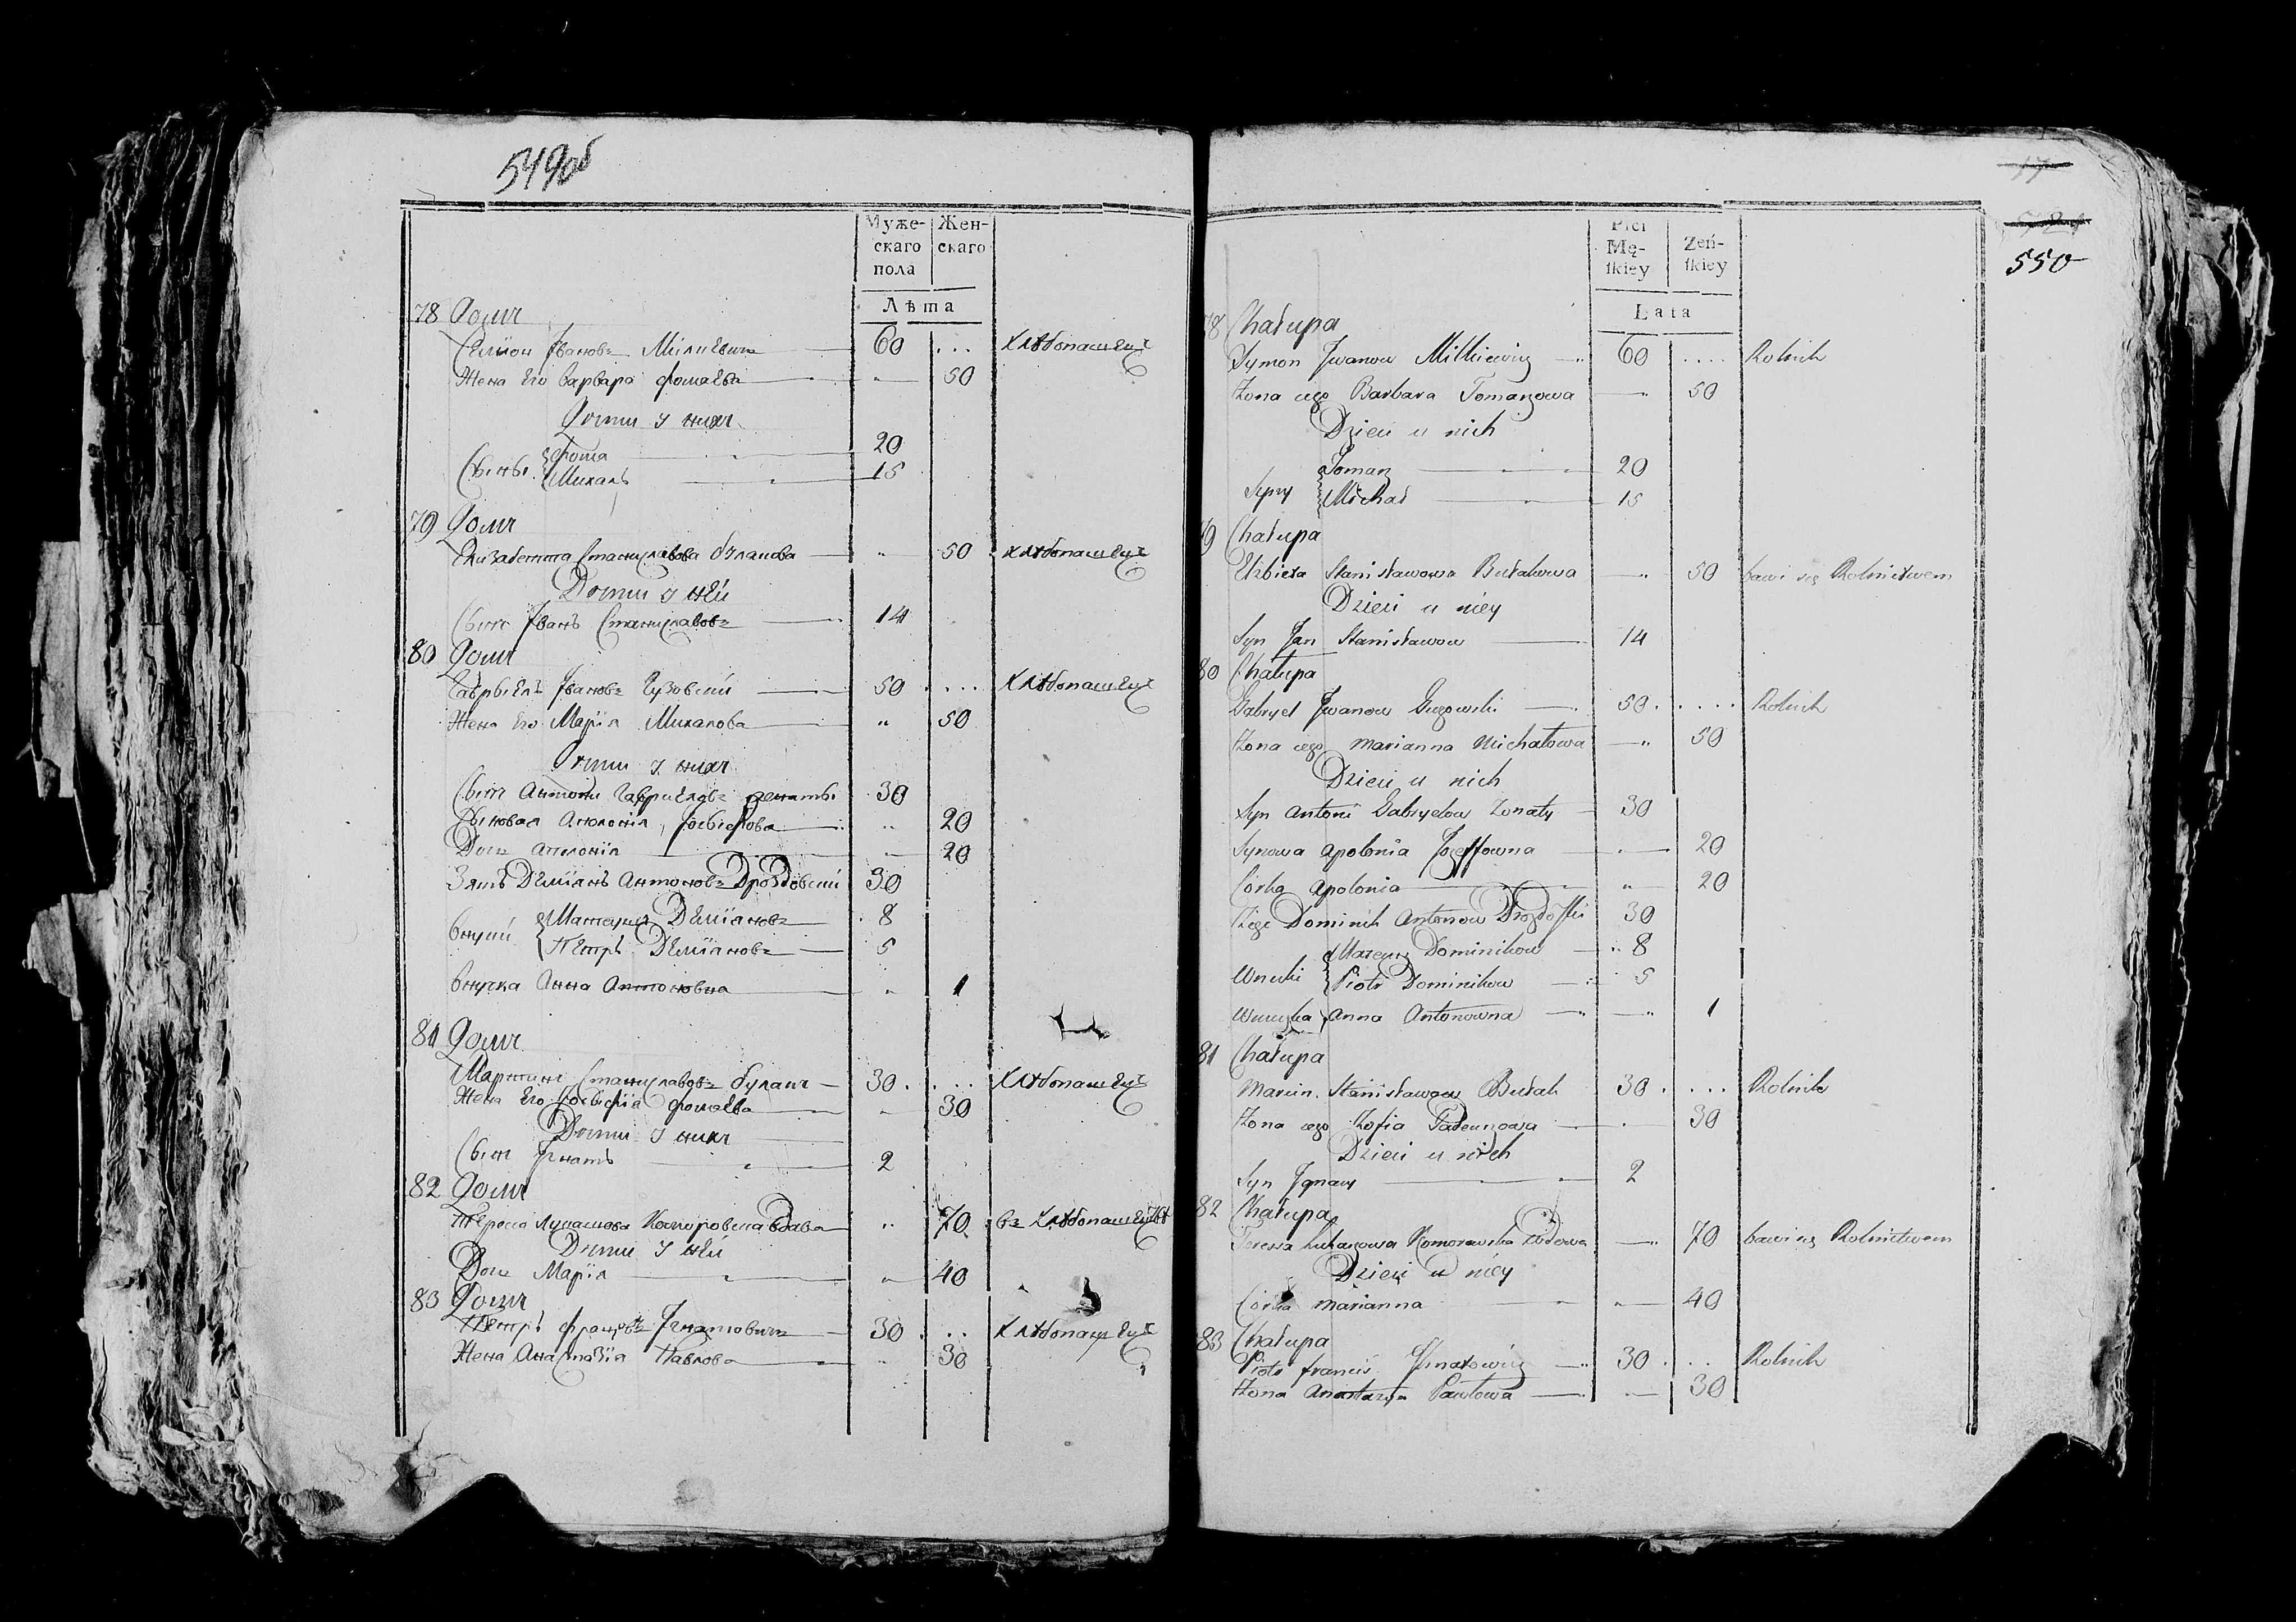 549об
Муже- Жен-
скаго скаго
пола
Лѣта
78 Домъ
Семіон Иванов Милкевич 60 ... хлѣбопашецъ
Жена его варвара фомаева 50
Дѣти у нихъ
Сыны фома 20
Михалъ 15
79 Домъ
Елизабетта Станиславова булакова 50 хлѣбопашецъ
Дѣти у ней
Сынъ Иванъ Станиславовъ 14
80 Домъ
Габрыелъ Ивановъ Гузовскій 50 ... хлѣбопашецъ
Жена его Марія Михалова 50
Дѣти у нихъ
Сынъ Антони Гавриеловъ женаты 30
Сыновая Аполонія Іосыфова 20
Дочь аполонія 20
Зять Деміанъ Антоновъ Дроздовскій 30
внуки Матеушъ Деміановъ 8
Петръ Деміановъ 5
внучка Анна Антоновна 1
81 Домъ
Мартинъ Станиславовъ булакъ 30 ... хлѣбопашецъ
Жена его фомаева 30
Дѣти у нихъ
Сынъ Игнатъ 2
82 Домъ
Тереса Лукашова Коморовска вдова 70 въ хлѣбопашествѣ
Дѣти у ней
Дочь Марія 40
83 Домъ
Петръ Игнатовичъ 30 ... хлѣбопашецъ
Жена Анастазіа Павлова 30
550
Płci
Mę- Żeń-
ſkiey ſkiey
Lata
78 Chałupa
Symon Jwanow Milkiewicz 60 .... Rolnik
Żona iego Barbara Tomaszowa 50
Dzieci u nich
Tomasz 20
Syny Michał 15
79 Chałupa
Elzbieta Stanisławowa Bułakowa 50 bawi się Rolnictwem
Dzieci u niey
Syn Jan Stanisławow 14
80 Chałupa
Gabryel Jwanow Guzowski 50 .... Rolnik
Żona iego Marianna Michałowa 50
Dzieci u nich
Syn Antoni Gabryelow żonaty 30
Synowa Apolonia Jozeffowna 20
Corka Apolonia 20
Zięć Dominik Antonow Drozdoſki 30
Mateusz Dominikow 8
Wnuki Piotr Dominikow 5
Wnuczka Anna Antonowna 1
81 Chałupa
Marcin Stanisławow Bułak 30 ... Rolnik
Żona iego Zofia Tadeuszowa 30
Dzieci u nich
Syn Jgnacy 2
82 Chałupa
Teressa Łukaszowa Komorowska Wdowa 70 bawi się Rolnictwem
Dzieci u niey
Corka Marianna 40
83 Chałupa
Piotr Francis Jgnatowicz 30 ... Rolnik
Żona Anastazya Pawłowa 30